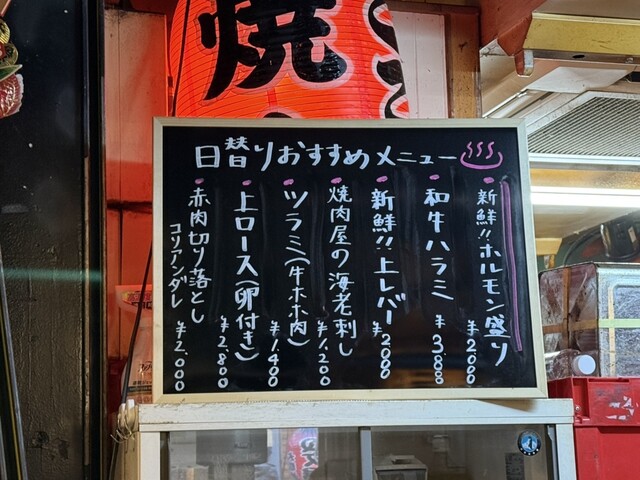 焼
日替りおすすめメニュー
・新鮮!!ホルモン盛り ¥2000
・和牛ハラミ ¥3,800
・新鮮!!上レバー ¥2000
・焼肉屋の海老刺し ¥1,200
・ツラミ(牛ホホ肉) ¥1,400
・上ロース(卵付き) ¥2,800
・赤肉切り落とし
コリアンダレ ¥2,000